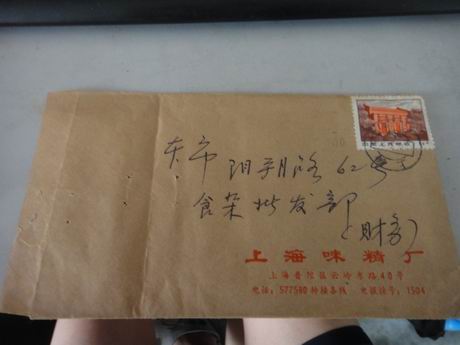 本市 阳朔路62号
食杂批发部
(财务)
上海味精厂
上海普陀区云岭东路40号
电话：577580转接各线 电报挂号：1504